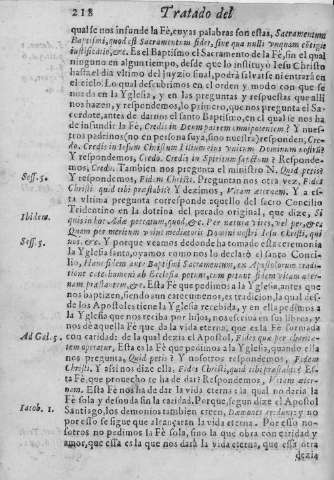 218 Tratado del
qual se nos infunde la Fè, cuyas palabras son estas, Sacramentum
Baptismi, quod est Sacramentum fidei, sine qua nulli vnquam cōtigit
iustificatio, &c. Es el Baptismo el Sacramento de la Fè, sin el qual
ninguno en algun tiempo, desde que lo instituyò Iesu Christo
hasta el dia vltimo del juyzio final, podrà salvarse ni entrarà en
el cielo. Lo qual descubrimos en el orden y modo con que se
nos dà en la Yglesia, y en las preguntas y respuestas que alli
nos hazen, y respondemos, lo primero, que nos pregunta el Sa-
cerdote, antes de darnos el santo Baptismo, en el qual se nos ha
de infundir la Fè, Credis in Deum patrem omnipotentem? Y nue-
stros padrinos (no en persona suya, sino nuestra) responden, Cre-
do. Credis in Iesum Christum filium eius vnicum Dominum nostrũ?
Y respondemos, Credo. Credis in Spiritum sanctum? Responde-
mos, Credo. Tambien nos pregunta el ministro N. Quid petis?
Sess. 5. Y respondemos, Fidem Christi. Preguntan nos otra vez, Fides
Christi quid tibi præstabit? Y dezimos, Vitam æternam. Y a es-
ta vltima pregunta corresponde aquello del sacro Concilio
Tridentino en la dotrina del pecado original, que dize, Si
Ibidem. quis in hoc Adæ peccatum, quod, &c. Per naturæ vires, vel per, &c.
Quam per meritum vnius mediatoris Domini nostri Iesu Christi, qui
Sess. 5. nos, &c. Y porque veamos dedonde ha tomado esta ceremonia
la Yglesia santa, oyamos como nos lo declarò el santo Conci-
lio, Hanc fidem ante Baptismi Sacramentum, ex Apostolorum tradi-
tione catechumeni ab Ecclesia petunt, cum petunt fidem vitam æter-
nam præstantem, &c. Esta Fè que pedimos a la Yglesia, antes que
nos baptizen, siendo aun catecumenos, es tradicion, la qual des-
de los Apostoles tiene la Yglesia recebida, y en ella pedimos a
la Yglesia que nos reciba por hijos, nos escriva en sus libros, y
nos dè aquella Fè que da la vida eterna, que es la Fè formada
Ad Gal. 5. con caridad: de la qual dezia el Apostol, Fides quæ per charita-
tem operatur. Esta es la Fè que pedimos a la Yglesia, quando ella
nos pregunta, Quid petis? Y nosotros respondemos, Fidem
Christi. Y assi nos dize ella, Fides Christi, quid tibi præstabit? Es-
ta Fè, que provecho te ha de dar? Respondemos, Vitam æter-
nam. Esta Fè nos ha de dar la vida eterna: la qual no daria la
Fè sola y desnuda sin la caridad. Porque, segun dize el Apostol
Iacob. 1. Santiago, los demonios tambien creen, Dæmones credunt; y no
por esso se sigue que alcançaràn la vida eterna. Por esso no-
sotros no pedimos la Fè sola, sino la que obra con caridad y
amor, que essa es la que nos darà la vida eterna, que essa otra
dezia